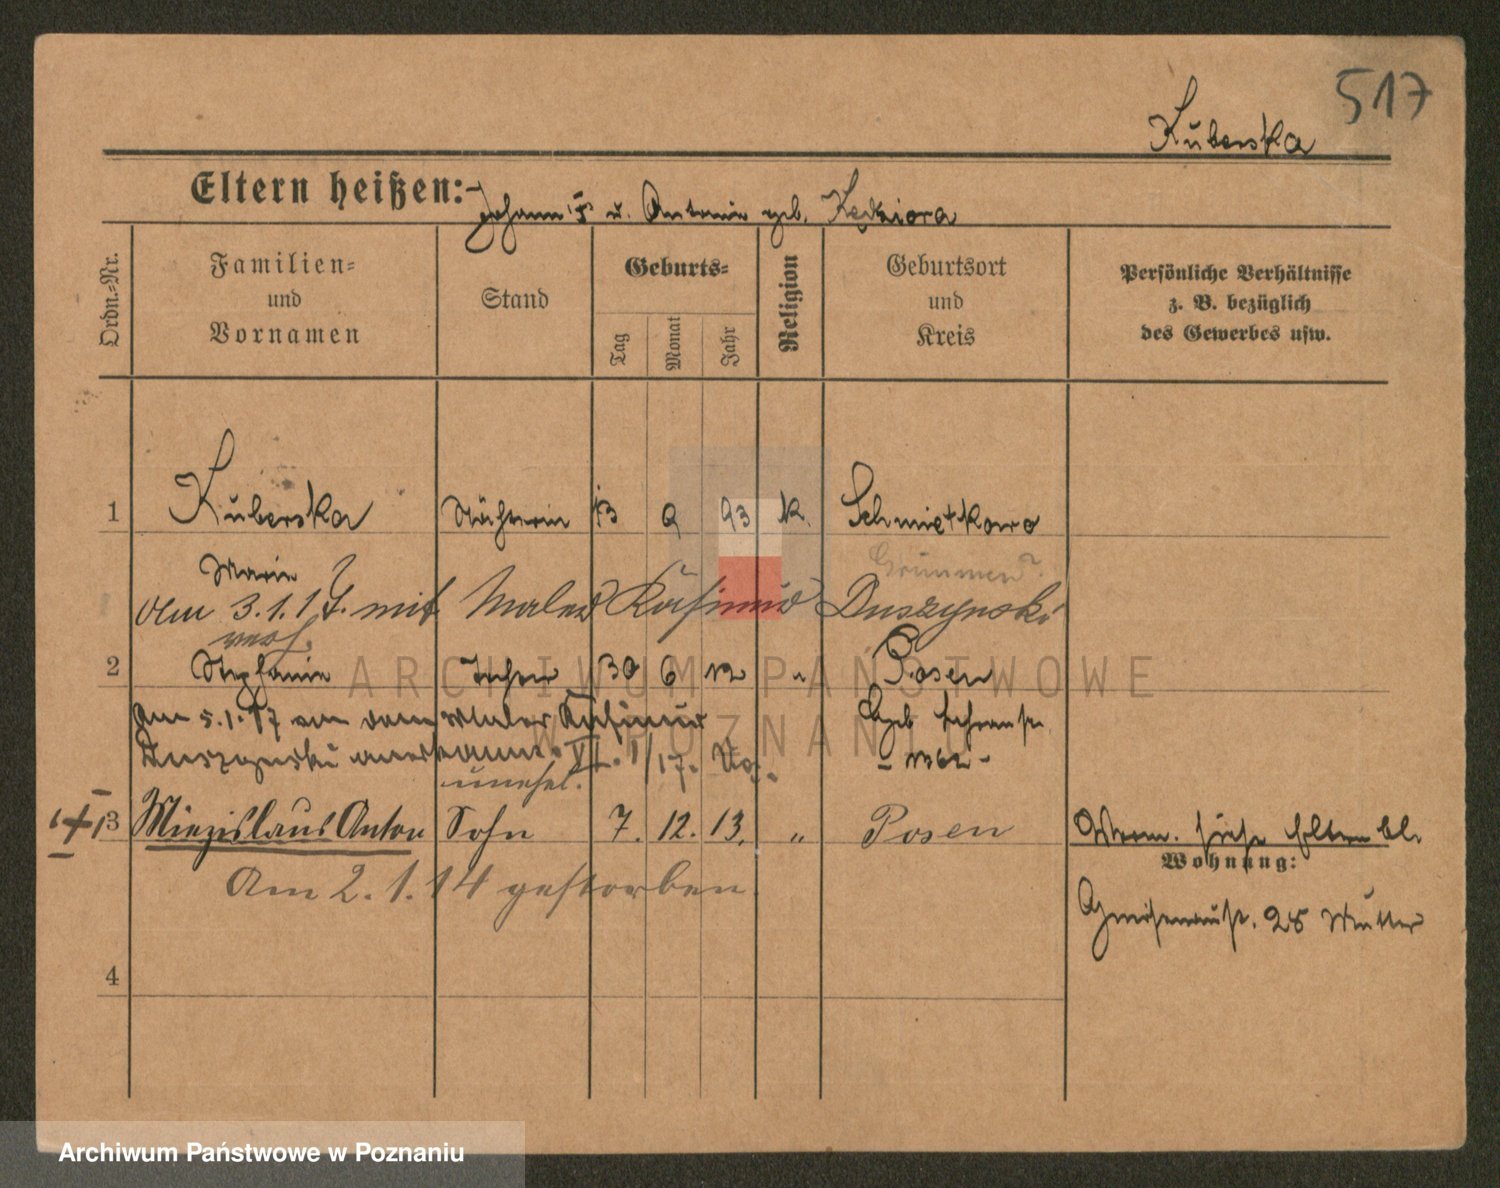 517
Kuberska
Eltern heißen: Johann † u. Antonie geb. Kędziora
Ordn.-Nr.
Familien-
und
Vornamen
Stand
Geburts-
Tag
Monat
Jahr
Religion
Geburtsort
und
Kreis
Persönliche Verhältnisse
z. B. bezüglich
des Gewerbes usw.
1 Kuberska Näherin 13 9 93 k. Schmietkowo
Marie
Am 3.1.17. mit Maler Kasimir Duszynski
verh.
2 Stephanie Tochter 30 6 12 " Posen
Am 5.1.17 von dem Maler Kasimir
Duszynski anerkannt.
unehel.
3 Miezislaus Anton Sohn 7. 12. 13. " Posen
Am 2.1.14 gestorben.
Wohnung:
Gneisenaustr. 25 Mutter
4
ARCHIWUM PAŃSTWOWE
W POZNANIU
Archiwum Państwowe w Poznaniu